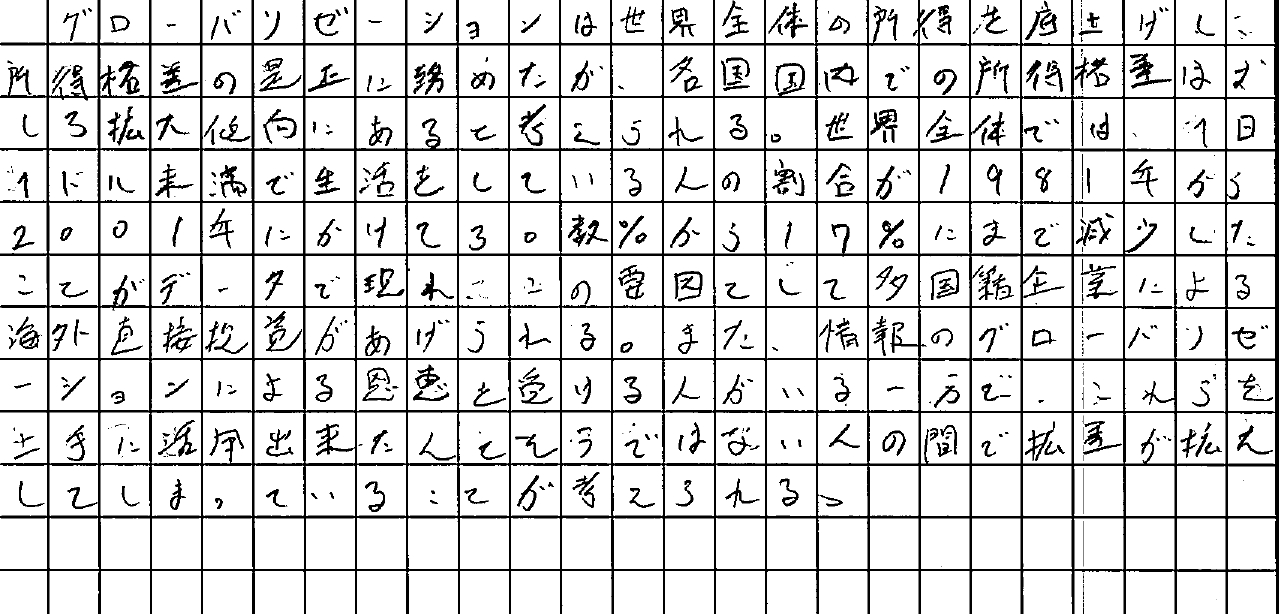 グローバリゼーションは世界全体の所得を底上げしこ
所得格差の是正に務めたが、各国国内での所得格差はむ
しろ拡大傾向にあると考えられる。世界全体では、1日
1ドル未満で生活をしている人の割合が1981年から
2001年にかけて30数%から17%にまで減少した
ことがデータで現れこの要因として多国籍企業による
海外直接投資があげられる。また、情報のグローバリゼ
ーションによる恩恵を受ける人がいる一方で、これらを
上手に活用出来た人とそうではない人の間で拡差が拡大
してしまっていることが考えられる。